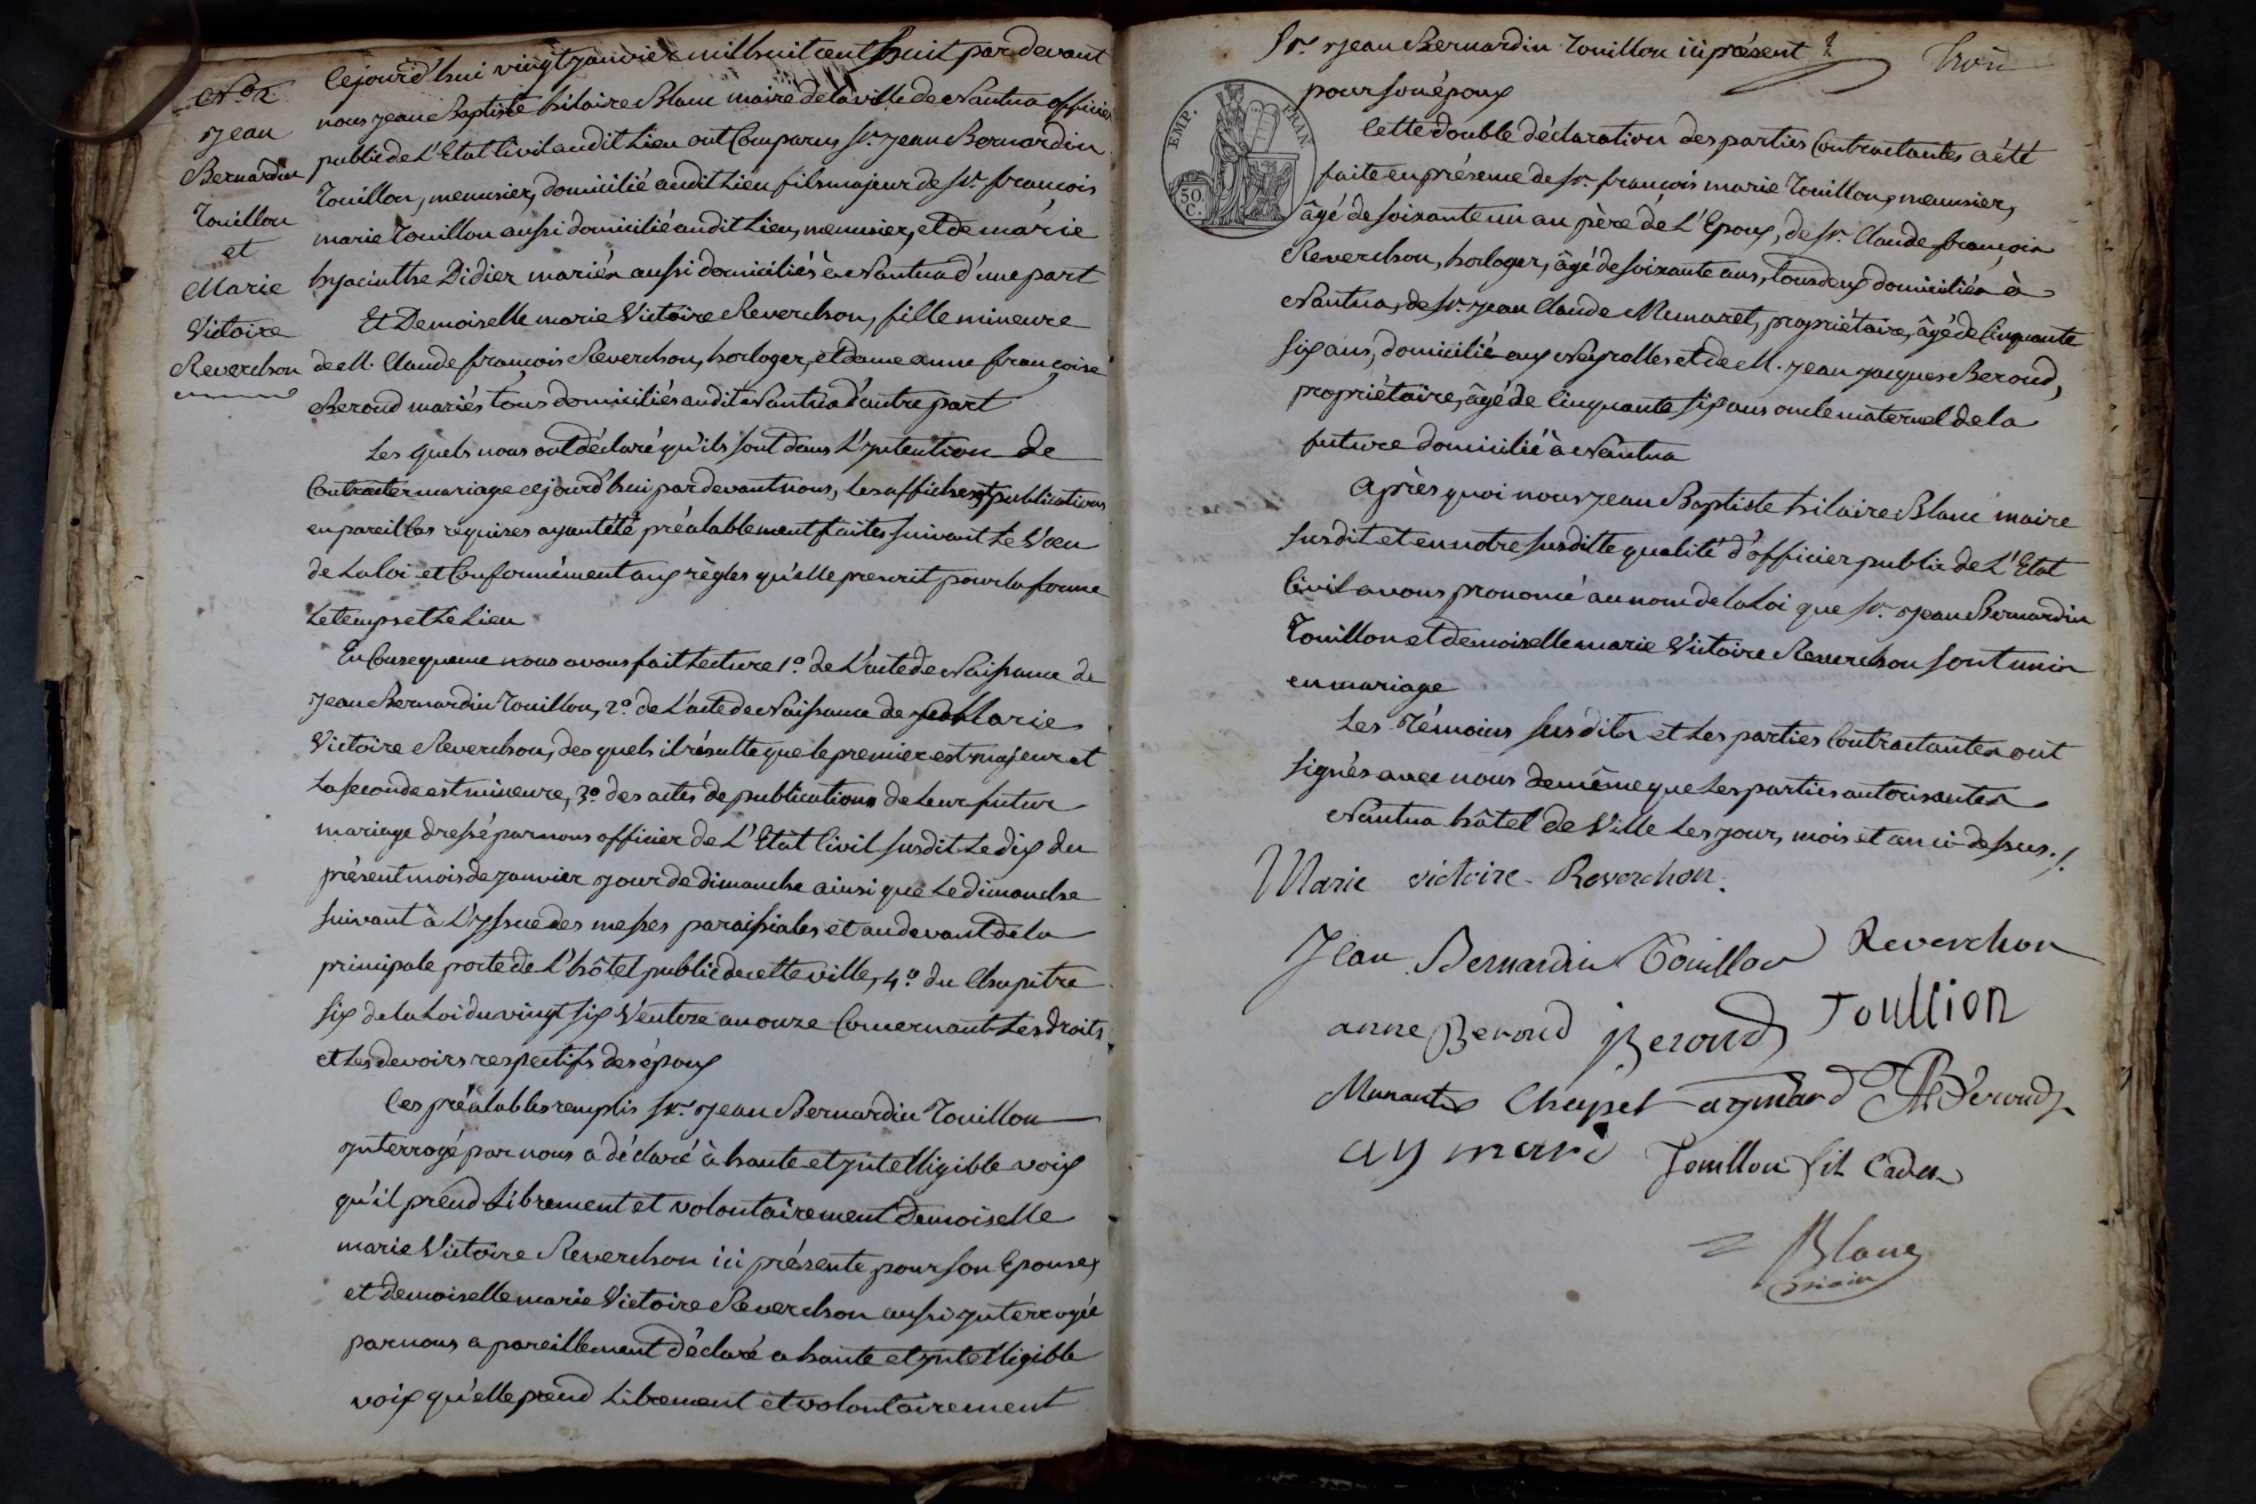 N.o 2
Jean
Bernardin
Touillon
et
Marie
Victoire
Reverchon
Cejourd'hui vingt janvier mil huit cent huit par devant
nous jean Baptiste hilaire Blanc maire de la ville de Nantua officier
public de L'Etat Civil audit Lieu ont Comparus Sr. jean Bernardin
Touillon, menusier, domicilié audit Lieu fils majeur de Sr. françois
marie Touillon aussi domicilié audit Lieu, menusier, et de marie
hyacinthe Didier mariés aussi domiciliés à Nantua d'une part
Et Demoiselle marie Victoire Reverchon, fille mineure
de M. Claude françois Reverchon, horloger, et dame anne françoise
Beroud mariés tous domiciliés audit Nantua d'autre part
Les quels nous ont déclaré qu'ils sont dans L'yntention de
Contracter mariage cejourd'hui par devant nous, Les affiches et publications
en pareil Cas requises ayant été préalablement faites suivant Le Voeu
de La Loi et Conformément aux règles qu'elle prescrit pour la forme
Le temps et Le Lieu
En Consequence nous avons fait Lecture 1.o de L'acte de Naissance de
jean Bernardin Touillon, 2.o de L'acte de Naissance de Marie
Victoire Reverchon, des quels il résulte que le premier est majeur et
La seconde est mineure, 3.o des actes de publications de Leur futur
mariage dressé par nous officier de L'Etat Civil susdit Le dix du
présent mois de janvier jour de dimanche ainsi que Le dimanche
suivant à L'yssue des messes paroissiales et au devant de la
principale porte de L'hôtel public de cette ville, 4.o du Chapitre
six de la Loi du vingt six Ventose an onze Concernant Les droits
et Les devoirs respectifs des époux
Ces préalables remplis Sr. jean Bernardin Touillon
ynterrogé par nous a déclaré à haute et yntelligible voix
qu'il prend Librement et volontairement Demoiselle
marie Victoire Reverchon ici présente pour son Epouse,
et Demoiselle marie Victoire Reverchon aussi ynterrogée
par nous a pareillement déclaré a haute et yntelligible
voix qu'elle prend Librement et volontairement
Sr. jean Bernardin Touillon ici présent
trois
pour son époux
EMP. FRAN
50 C.
Cette double déclaration des parties Contractantes a été
faite en présence de Sr. françois marie Touillon, menusier,
âgé de soixante un an père de L'Epoux, de Sr. Claude françois
Reverchon, horloger, âgé de soixante ans, tous deux domiciliés à
Nantua, de Sr. jean Claude Munaret, propriétaire, âgé de Cinquante
six ans, domicilié aux Neyrolles et de M. jean jacques Beroud,
propriétaire, âgé de Cinquante six ans oncle maternel de la
future domicilié à Nantua
Après quoi nous jean Baptiste hilaire Blanc maire
susdit et en notre susditte qualité d'officier public de L'Etat
Civil avons prononcé au nom de la Loi que Sr. jean Bernardin
Touillon et demoiselle marie Victoire Reverchon sont unis
en mariage
Les Témoins susdits et Les parties Contractantes ont
signés avec nous de même que Les parties autorisantes
Nantua hôtel de Ville Les jour, mois et an ci-dessus./.
Marie victoire Reverchon.
Jean Bernardin Touillon Reverchon
anne Beroud Beroud Toullion
Chapel aymard Beroud
aymard Touillon fils Cadet
Blanc
maire